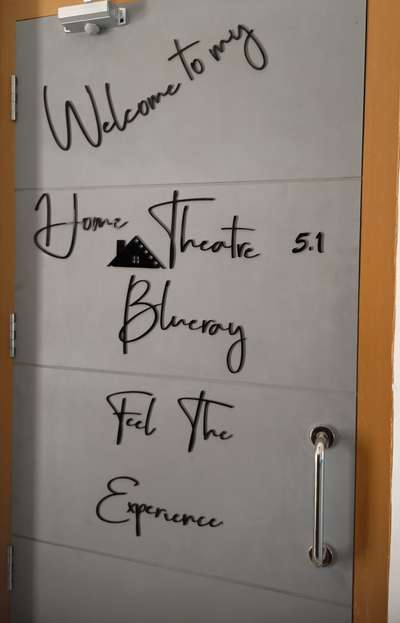 Welcome to my
Home Theatre 5.1
Blueray
Feel The
Experience